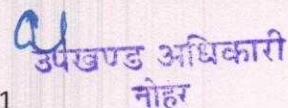 उपखण्ड अधिकारी
नोहर
1